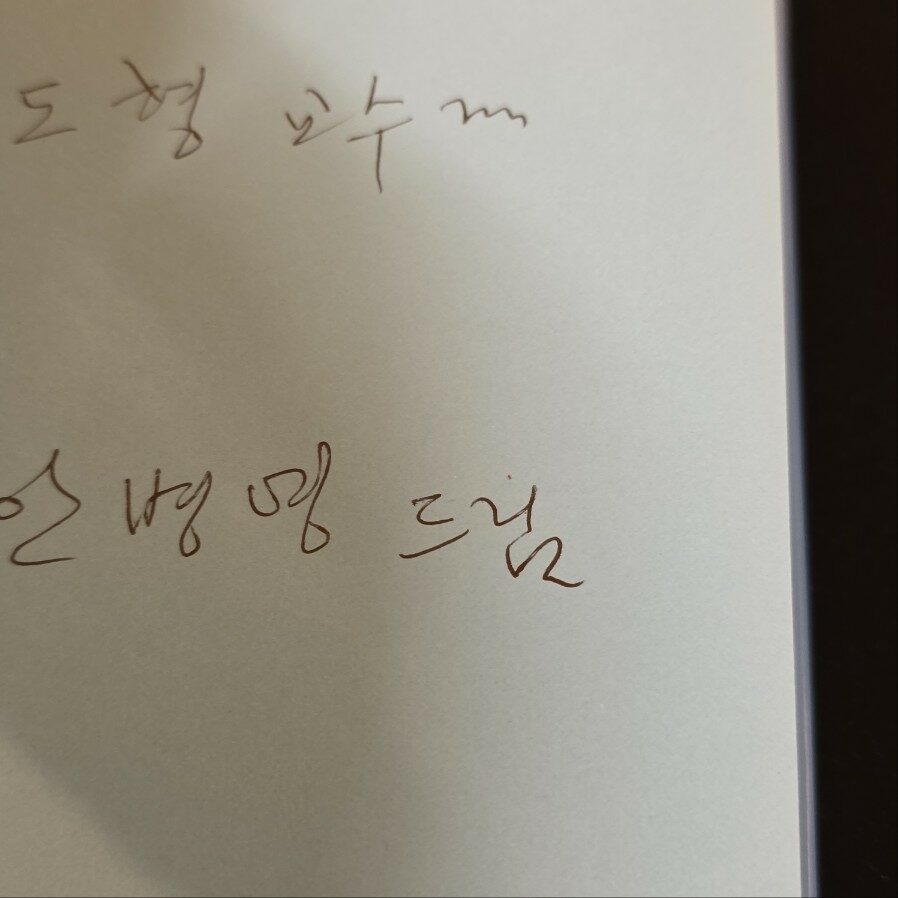 도형 교수
안병영 드림